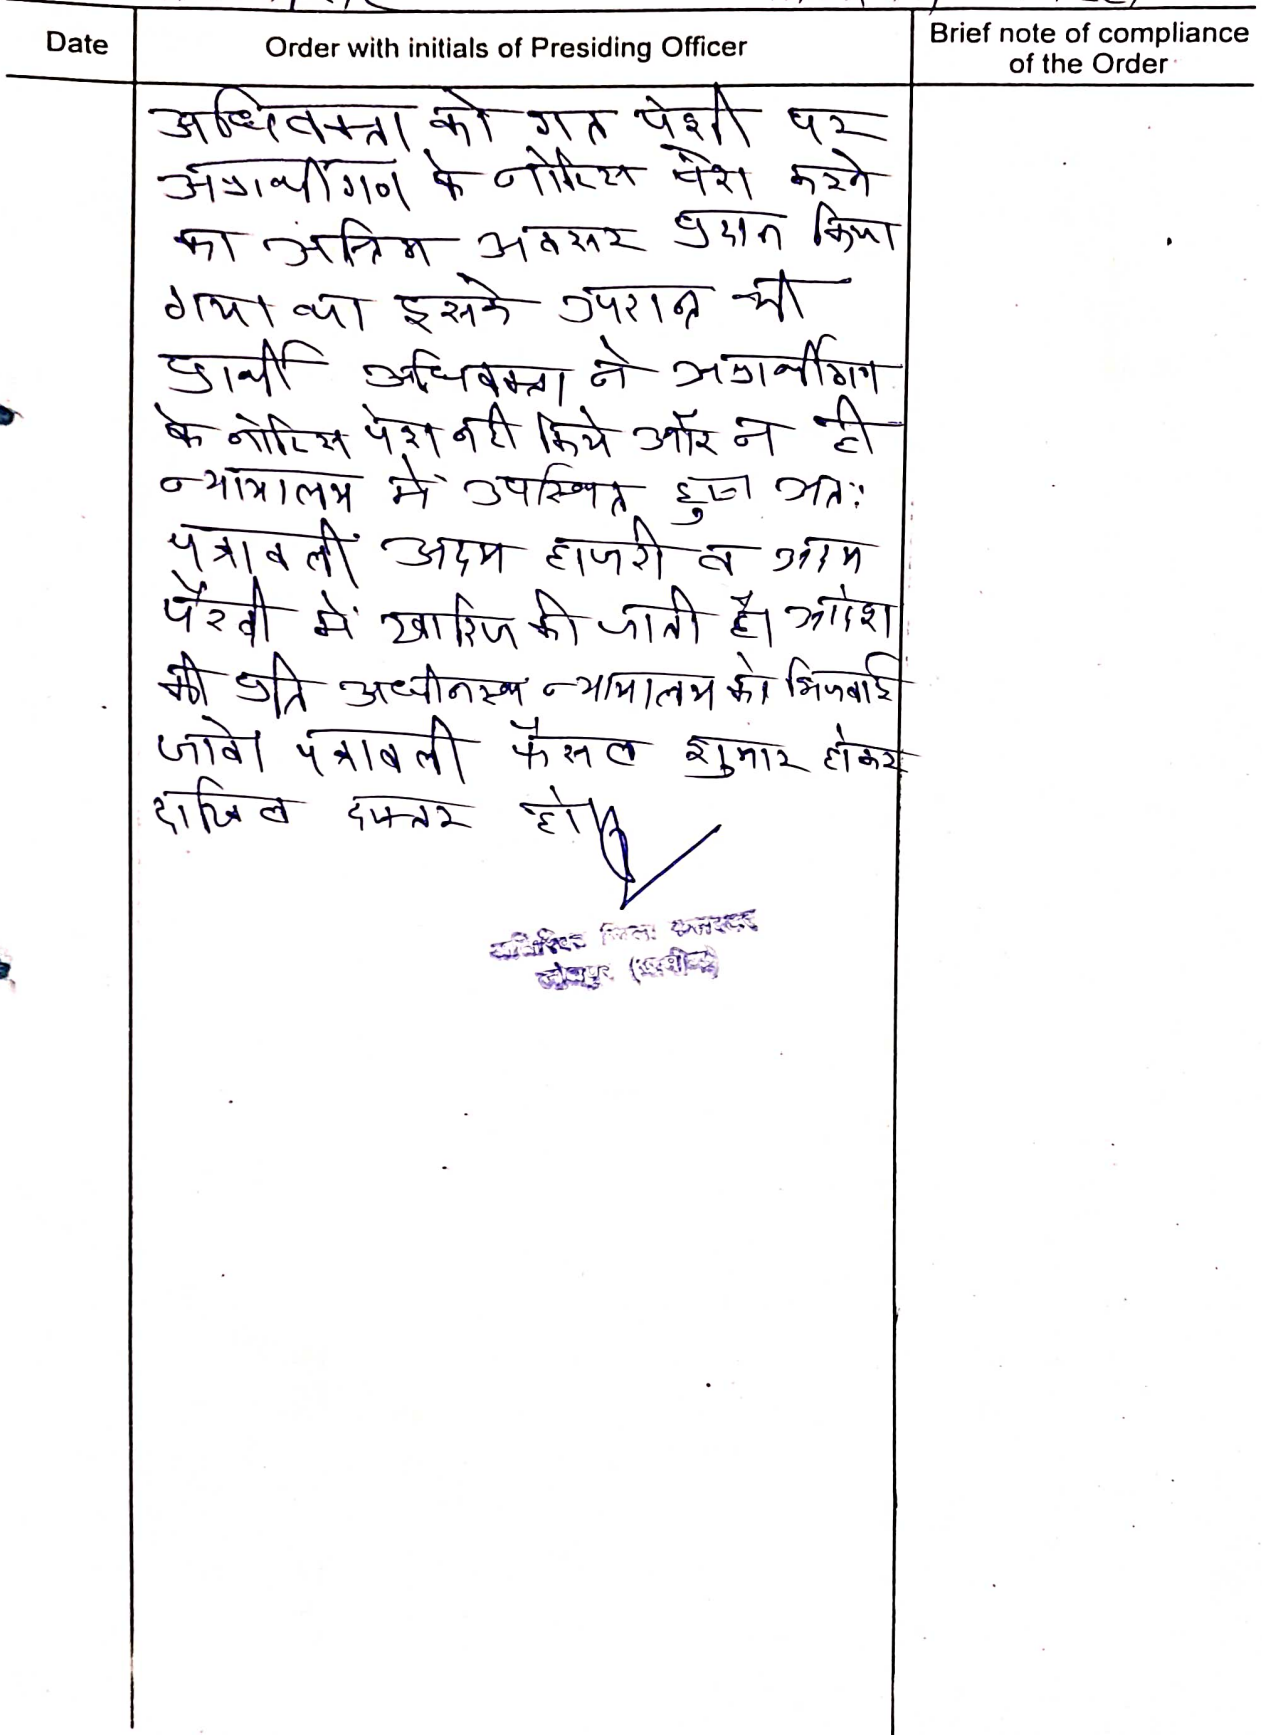 Date
Order with initials of Presiding Officer
Brief note of compliance
of the Order
अधिवक्ता को गत पेशी पर
अप्रार्थीगण के नोटिस पेश करने
का अन्तिम अवसर प्रदान किया
गया था इसके उपरान्त भी
प्रार्थी अधिवक्ता ने अप्रार्थीगण
के नोटिस पेश नही किये और न ही
न्यायालय में उपस्थित हुआ अतः
पत्रावली अदम हाजरी व अदम
पैरवी में खारिज की जाती है। आदेश
की प्रति अधीनस्थ न्यायालय को भिजवाई
जावे। पत्रावली फैसल शुमार होकर
दाखिल दफ्तर हो।
अतिरिक्त जिला कलक्टर
जोधपुर